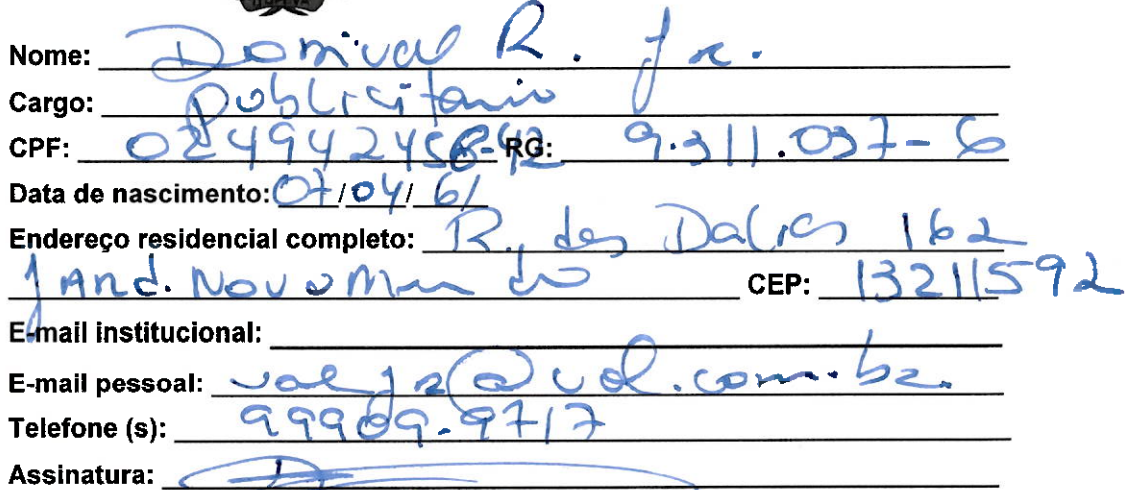 Nome: Domival R. Jr.
Cargo: Publicitario
CPF: RG: 9.311.037-6
Data de nascimento: 07/04/61
Endereço residencial completo: R. das Dalias 162
Jard. Novo Mundo CEP: 13211592
E-mail institucional:
E-mail pessoal: valjr@uol.com.br
Telefone (s): 99909-9717
Assinatura: